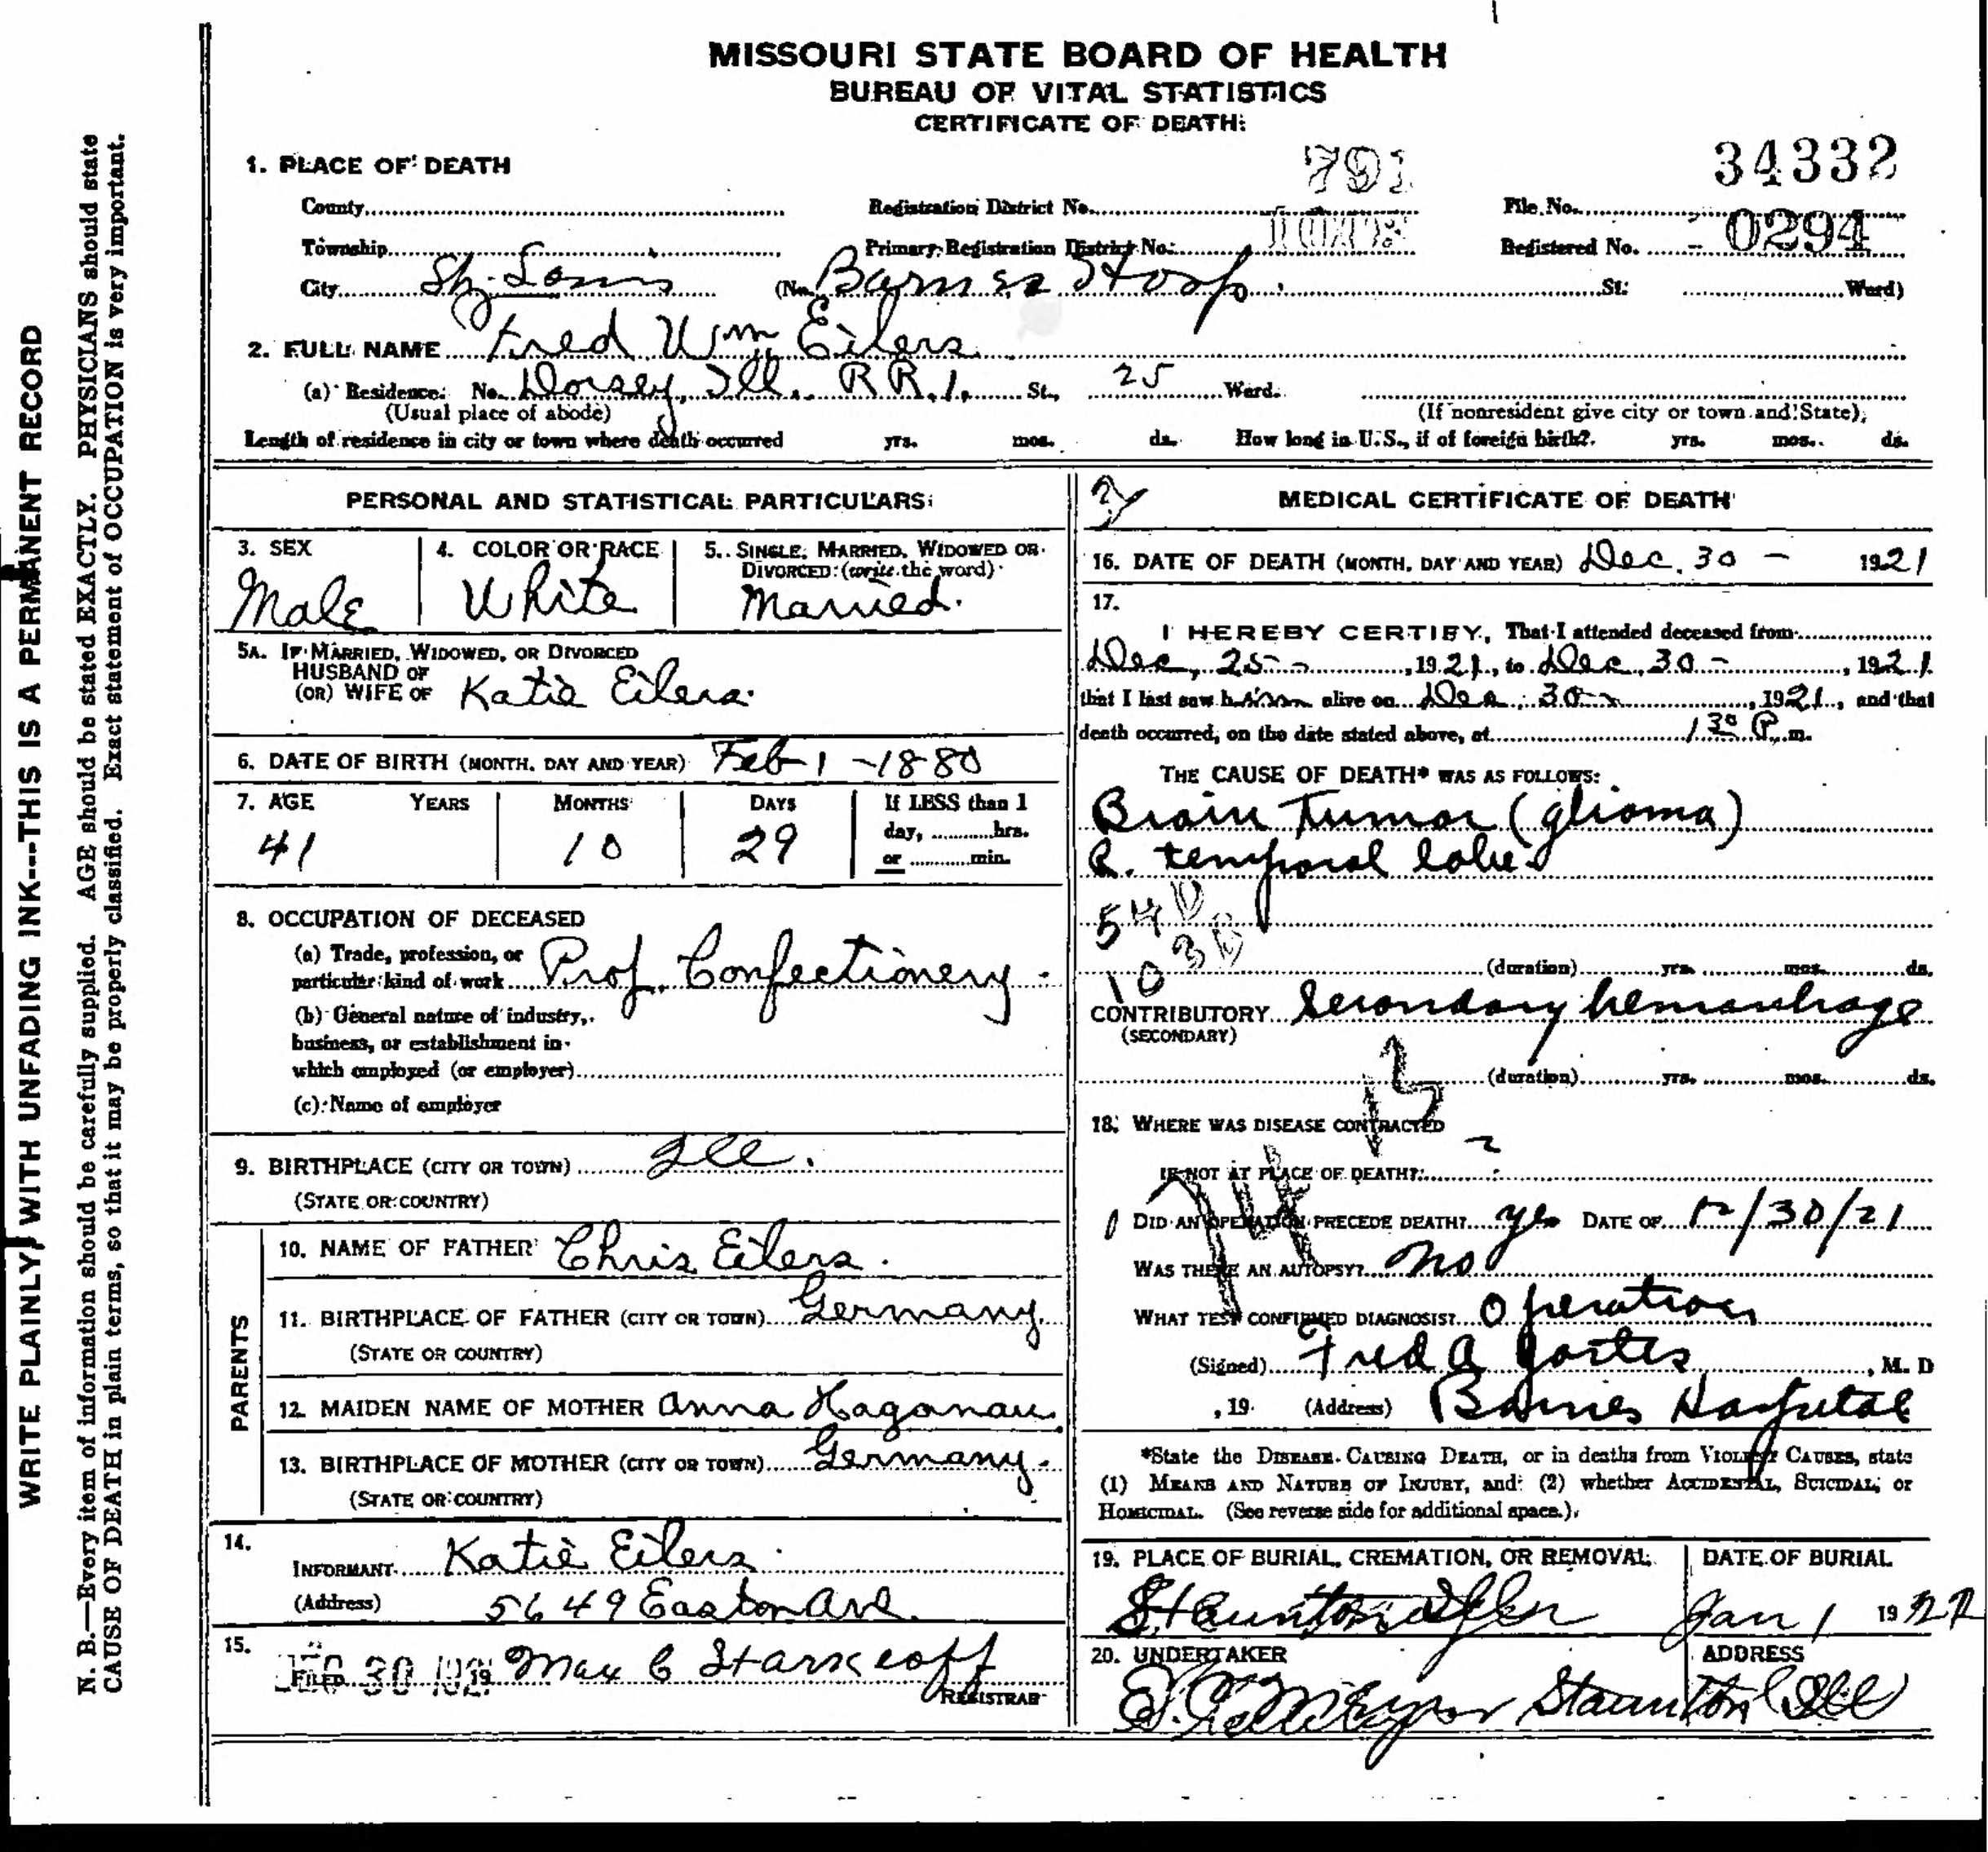 MISSOURI STATE BOARD OF HEALTH
BUREAU OF VITAL STATISTICS
CERTIFICATE OF DEATH
1. PLACE OF DEATH
791
34332
County
Registration District No.
File No.
Township
Primary Registration District No.
1003
Registered No. 0294
City St. Louis (No. Barnes Hosp. St. Ward)
2. FULL NAME Fred Wm Eilers
(a) Residence. No. Dorsey, Ill. R R. 1. St., 25 Ward.
(Usual place of abode) (If nonresident give city or town and State)
Length of residence in city or town where death occurred yrs. mos. ds. How long in U.S., if of foreign birth? yrs. mos. ds.
PERSONAL AND STATISTICAL PARTICULARS
3. SEX
Male
4. COLOR OR RACE
White
5. SINGLE, MARRIED, WIDOWED OR
DIVORCED (write the word)
Married.
5A. IF MARRIED, WIDOWED, OR DIVORCED
HUSBAND OF
(OR) WIFE OF Katie Eilers.
6. DATE OF BIRTH (MONTH, DAY AND YEAR) Feb-1-1880
7. AGE YEARS MONTHS DAYS If LESS than 1
day, hrs.
or min.
41 10 29
8. OCCUPATION OF DECEASED
(a) Trade, profession, or
particular kind of work Prof. Confectionery
(b) General nature of industry,
business, or establishment in
which employed (or employer)
(c) Name of employer
9. BIRTHPLACE (CITY OR TOWN) Ill.
(STATE OR COUNTRY)
PARENTS
10. NAME OF FATHER Chris Eilers.
11. BIRTHPLACE OF FATHER (CITY OR TOWN) Germany.
(STATE OR COUNTRY)
12. MAIDEN NAME OF MOTHER Anna Haganau
13. BIRTHPLACE OF MOTHER (CITY OR TOWN) Germany.
(STATE OR COUNTRY)
14.
INFORMANT Katie Eilers.
(Address) 5649 Easton Ave.
15.
FILED DEC 30 1921 19 Max C Starkloff
REGISTRAR
MEDICAL CERTIFICATE OF DEATH
16. DATE OF DEATH (MONTH, DAY AND YEAR) Dec. 30 - 1921
17.
I HEREBY CERTIFY, That I attended deceased from
Dec. 25 -, 1921, to Dec. 30 -, 1921
that I last saw him alive on Dec. 30 -, 1921, and that
death occurred, on the date stated above, at 1 30 P. m.
THE CAUSE OF DEATH* WAS AS FOLLOWS:
Brain Tumor (glioma)
R. temporal lobe
54
10
(duration) yrs. mos. ds.
CONTRIBUTORY Secondary hemorrhage
(SECONDARY)
(duration) yrs. mos. ds.
18. WHERE WAS DISEASE CONTRACTED
IF NOT AT PLACE OF DEATH?
DID AN OPERATION PRECEDE DEATH? yes DATE OF 12/30/21
WAS THERE AN AUTOPSY? no
WHAT TEST CONFIRMED DIAGNOSIS? Operation
(Signed) Fred A , M. D
, 19 (Address) Barnes Hospital
*State the DISEASE CAUSING DEATH, or in deaths from VIOLENT CAUSES, state
(1) MEANS AND NATURE OF INJURY, and (2) whether ACCIDENTAL, SUICIDAL, or
HOMICIDAL. (See reverse side for additional space.)
19. PLACE OF BURIAL, CREMATION, OR REMOVAL
Staunton
DATE OF BURIAL
Jan 1 1922
20. UNDERTAKER
ADDRESS
Staunton Ill
WRITE PLAINLY, WITH UNFADING INK---THIS IS A PERMANENT RECORD
N. B.—Every item of information should be carefully supplied. AGE should be stated EXACTLY. PHYSICIANS should state
CAUSE OF DEATH in plain terms, so that it may be properly classified. Exact statement of OCCUPATION is very important.